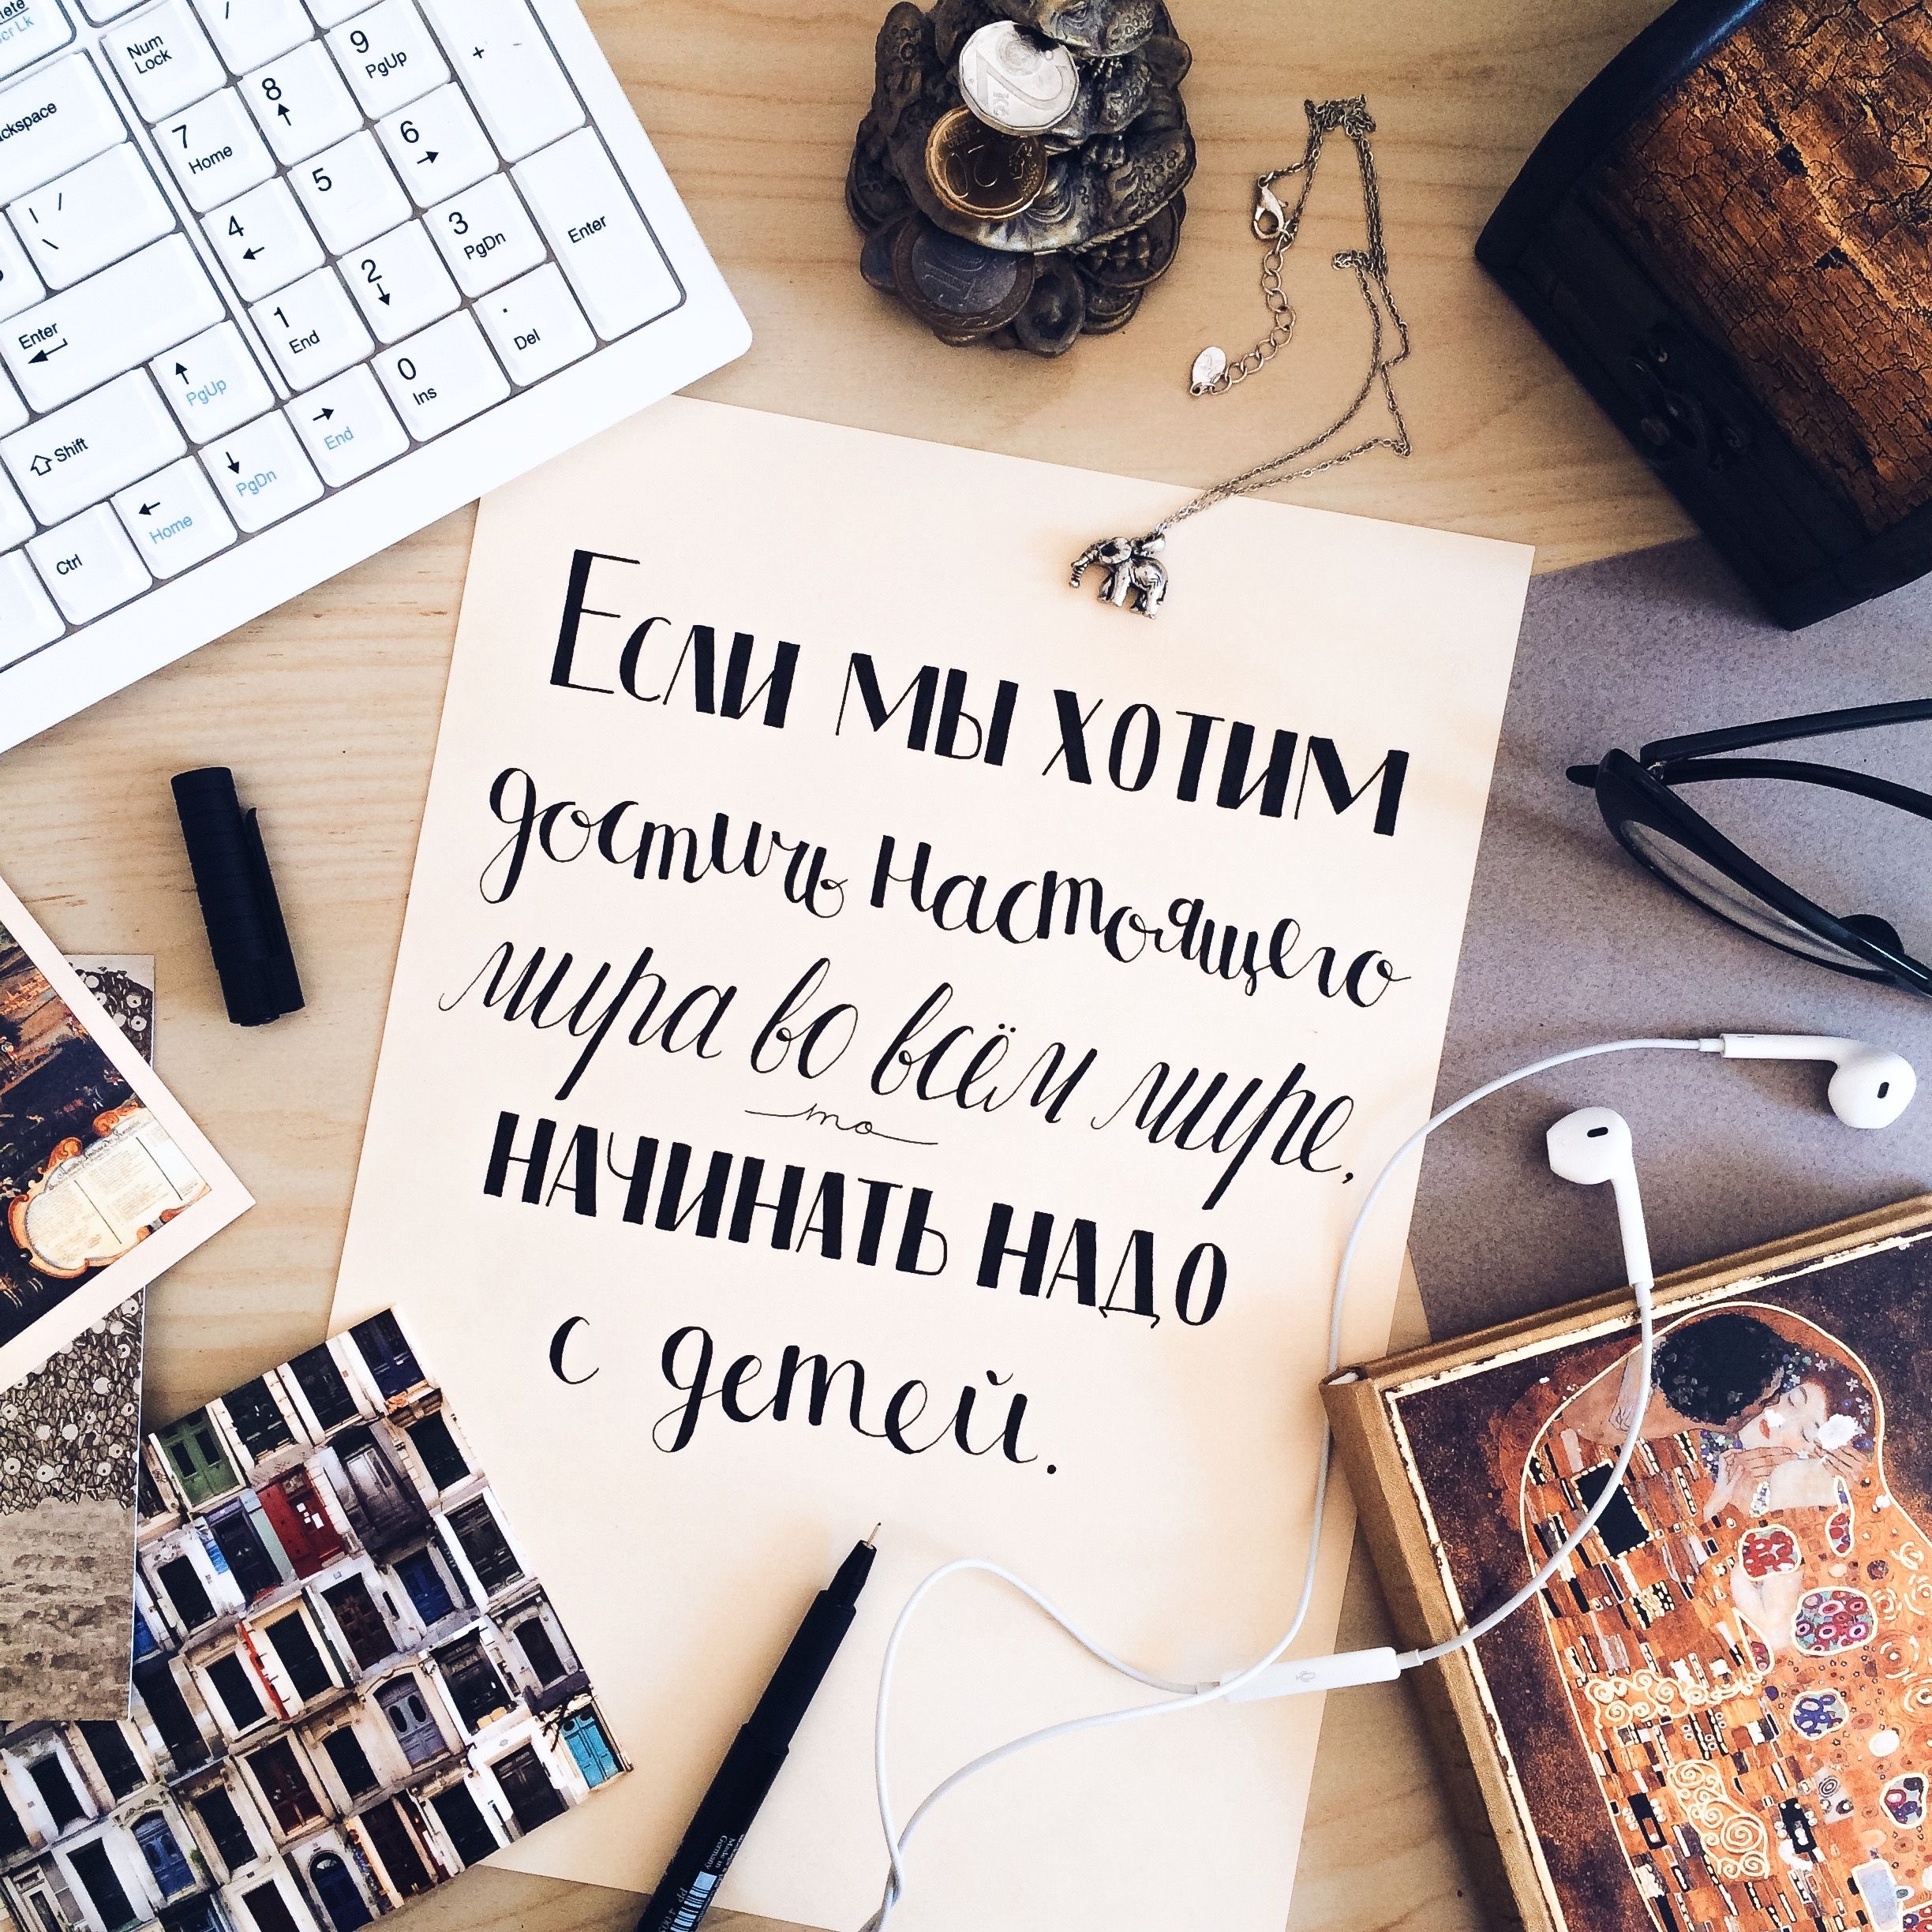 Num Lock
/
9 PgUp
+
Backspace
7 Home
8
6
| /
\
4
5
3 PgDn
Enter
Enter
1 End
2
.
Del
PgUp
0 Ins
Shift
PgDn
End
Ctrl
Home
20
Если мы хотим
достичь настоящего
мира во всём мире,
то
НАЧИНАТЬ НАДО
с детей.
Made in
Germany